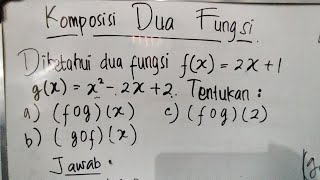 Komposisi Dua Fungsi
Diketahui dua fungsi f(x) = 2x + 1
g(x) = x² - 2x + 2. Tentukan :
a) (fog)(x) c) (fog)(2)
b) (gof)(x)
Jawab :